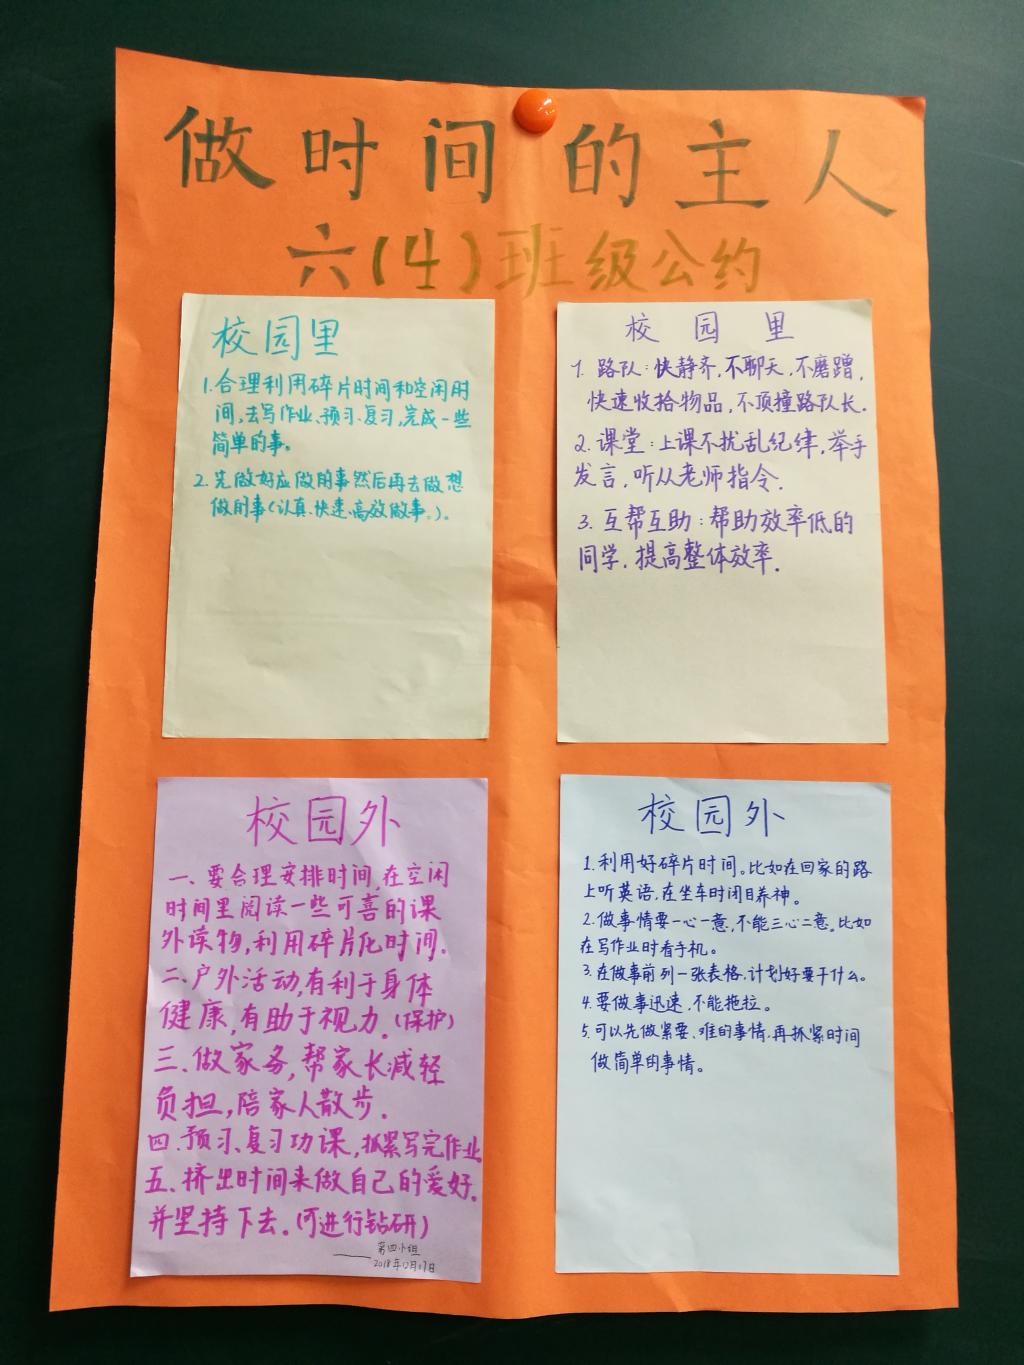 做时间的主人
六(4)班级公约
校园里
1.合理利用碎片时间和空闲时
间,去写作业、预习、复习,完成一些
简单的事。
2.先做好应做的事然后再去做想
做的事(认真、快速、高效做事。)。
校园里
1. 路队:快静齐,不聊天,不磨蹭,
快速收拾物品,不顶撞路队长.
2. 课堂:上课不扰乱纪律,举手
发言,听从老师指令.
3. 互帮互助:帮助效率低的
同学,提高整体效率.
校园外
一、要合理安排时间,在空闲
时间里阅读一些可喜的课
外读物,利用碎片化时间.
二、户外活动,有利于身体
健康,有助于视力.(保护)
三、做家务,帮家长减轻
负担,陪家人散步.
四、预习、复习功课,抓紧写完作业
五、挤出时间来做自己的爱好.
并坚持下去.(可进行钻研)
——第四小组
2018年12月17日
校园外
1.利用好碎片时间。比如在回家的路
上听英语,在坐车时闭目养神。
2.做事情要一心一意,不能三心二意。比如
在写作业时看手机。
3.在做事前列一张表格,计划好要干什么。
4.要做事迅速,不能拖拉。
5.可以先做紧要、难的事情,再抓紧时间
做简单的事情。